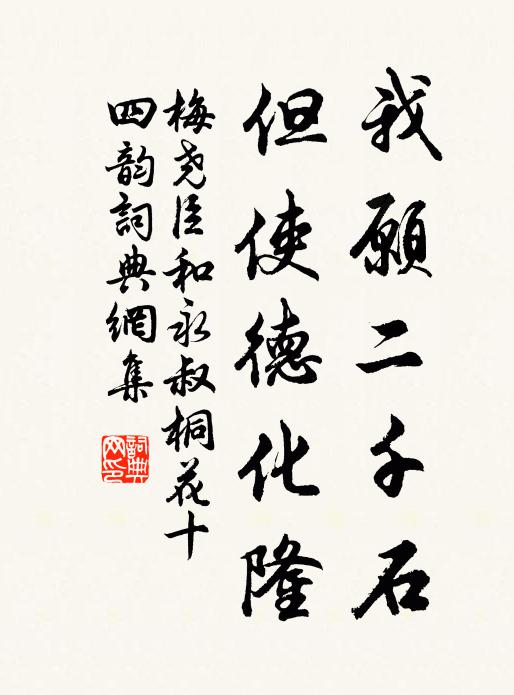 我願二千石
但使德化隆
梅尧臣和永叔桐花十
四韵詞典網集
詞典
网印